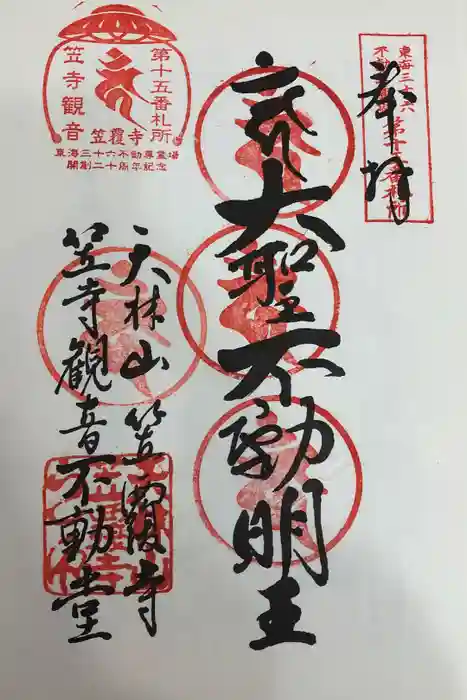 東海三十六
不動尊第十五番札所
奉拝
大聖不動明王
天林山 笠覆寺
笠寺観音不動堂
第十五番札所
笠寺観音
笠覆寺
東海三十六不動尊霊場
開創二十周年記念